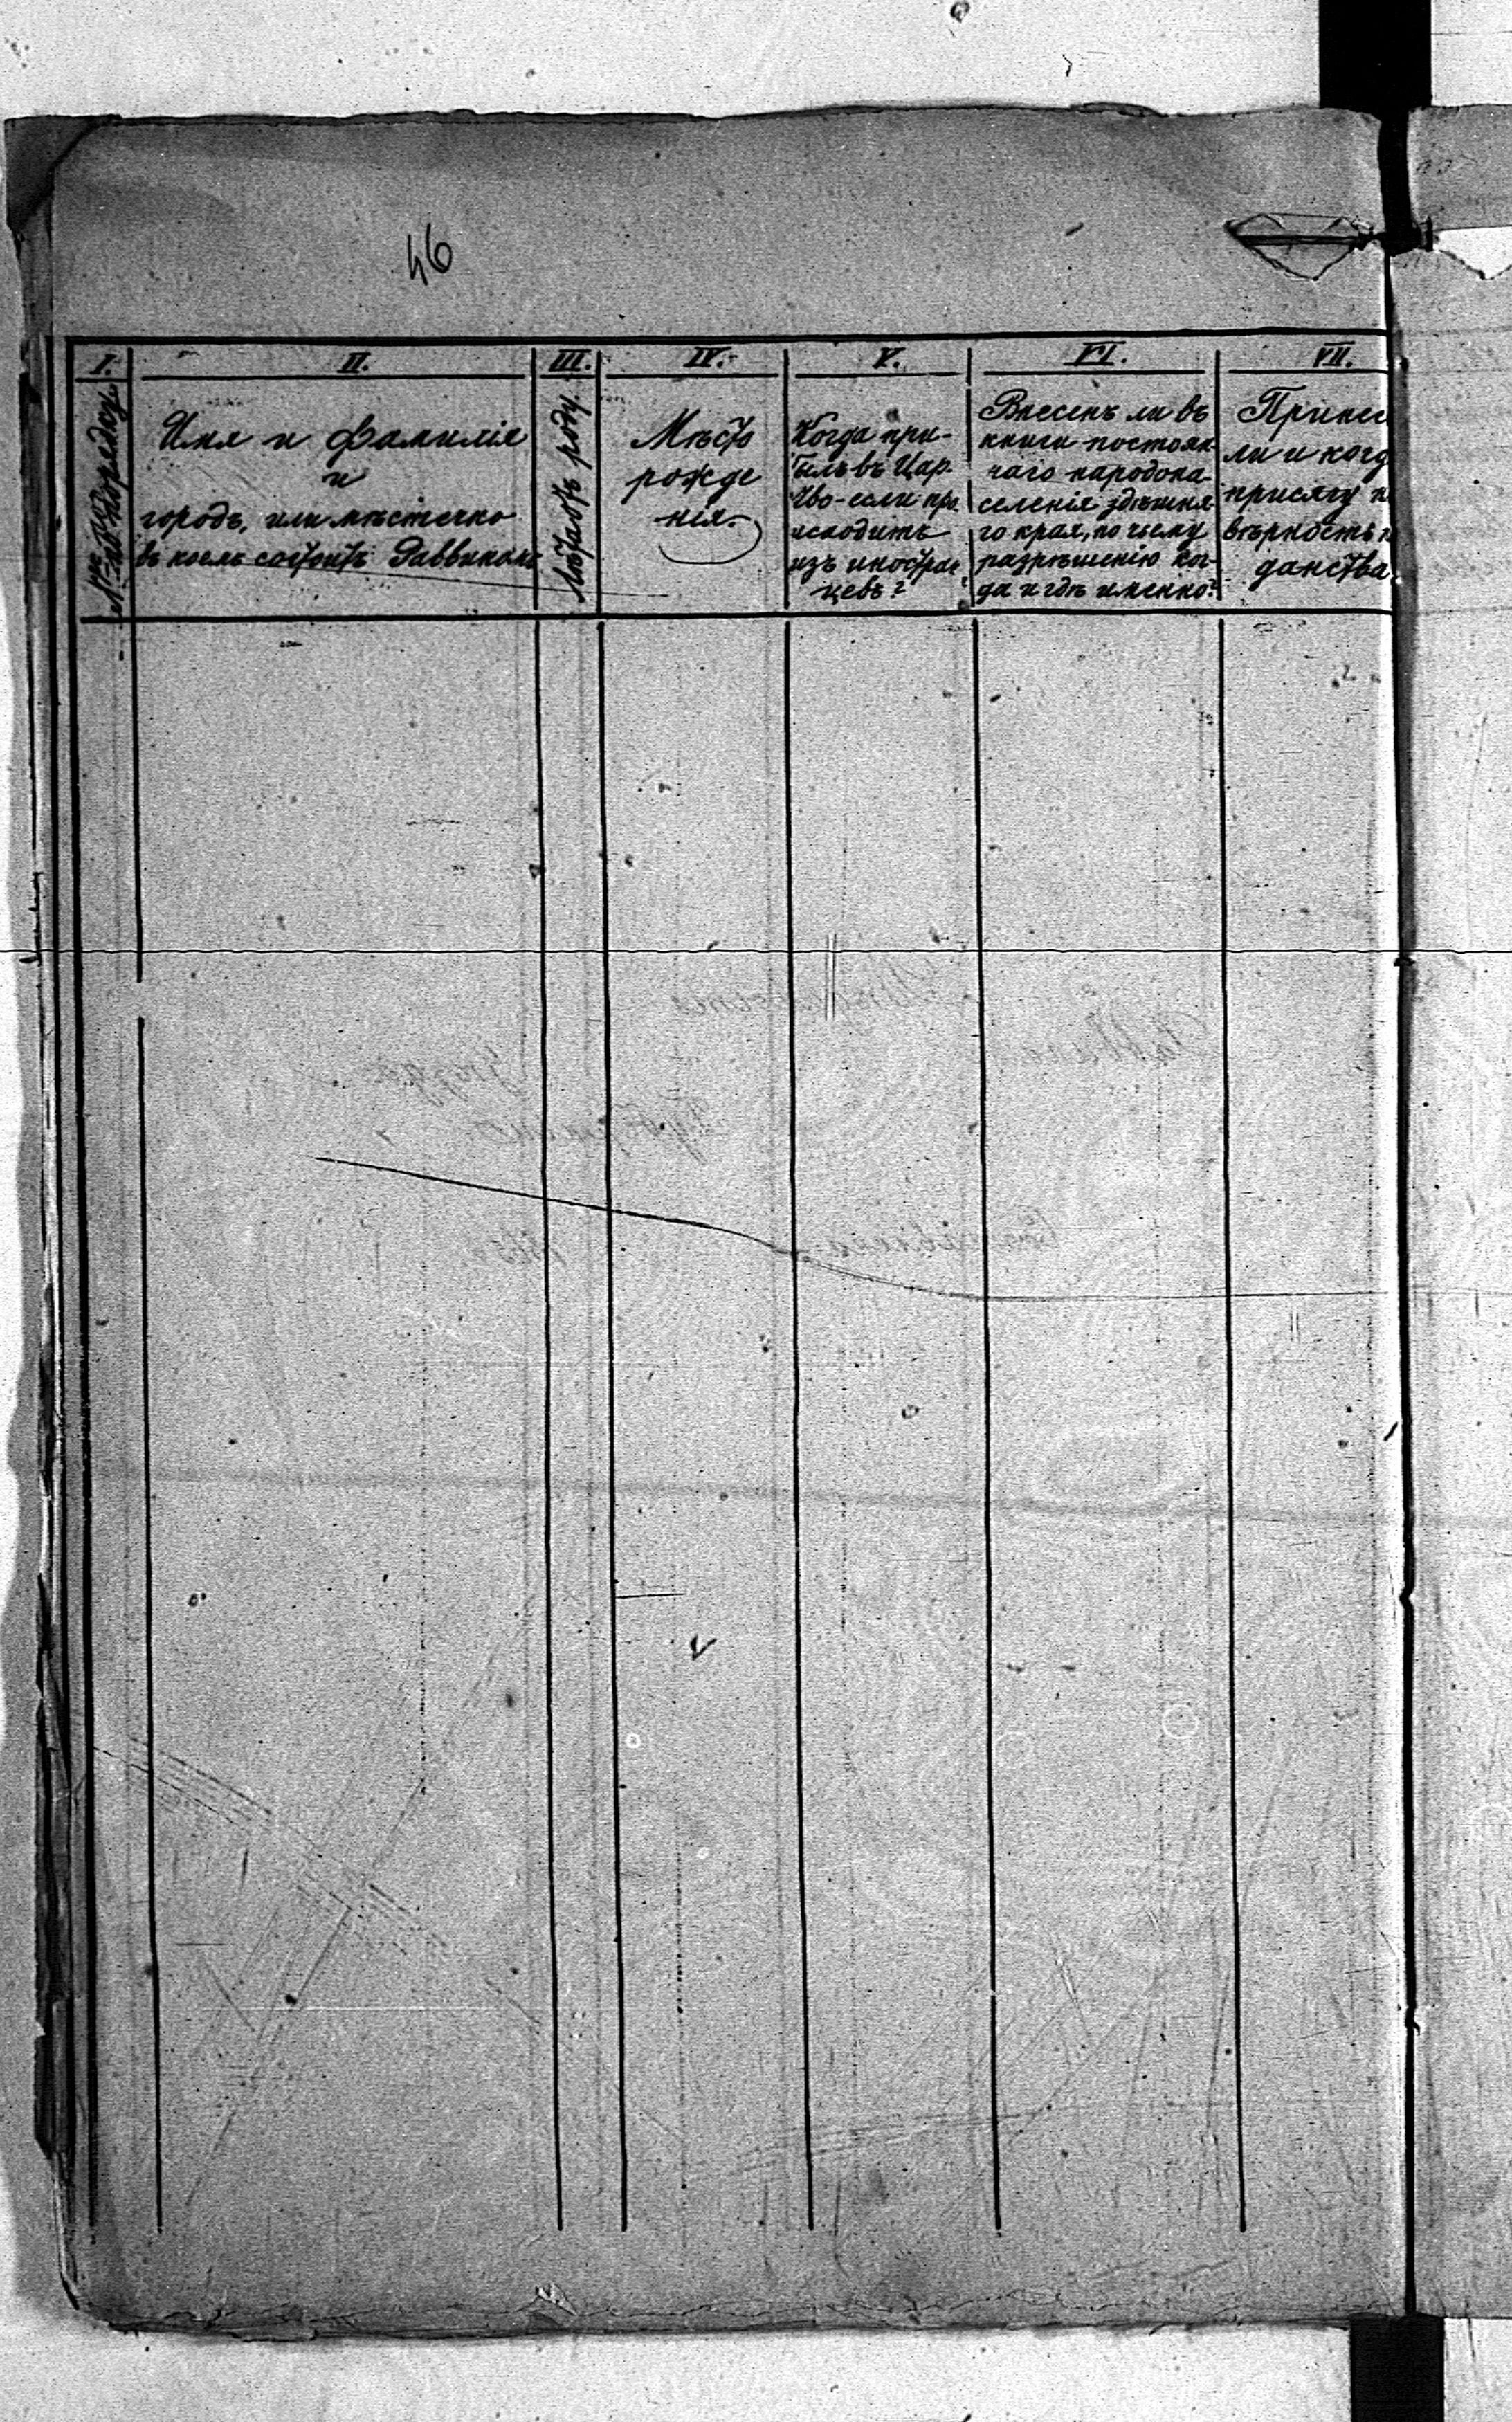 46
I.
№ по порядку
II.
Имя и фамилія
и
городъ, или мѣстечко
въ коемъ состоитъ Раввиномъ
III.
Лѣта отъ роду.
IV.
Мѣсто
рожде
нія.
V.
Когда при-
былъ въ Цар
ство - если про
исходитъ
изъ иностран
цевъ?
VI.
Внесенъ ли въ
книги постоян
наго народона
селенія здѣшня
го края, по чьему
разрѣшенію ког-
да и гдѣ именно?
VII.
Принес
ли и когд
присягу н
вѣрность п
данства